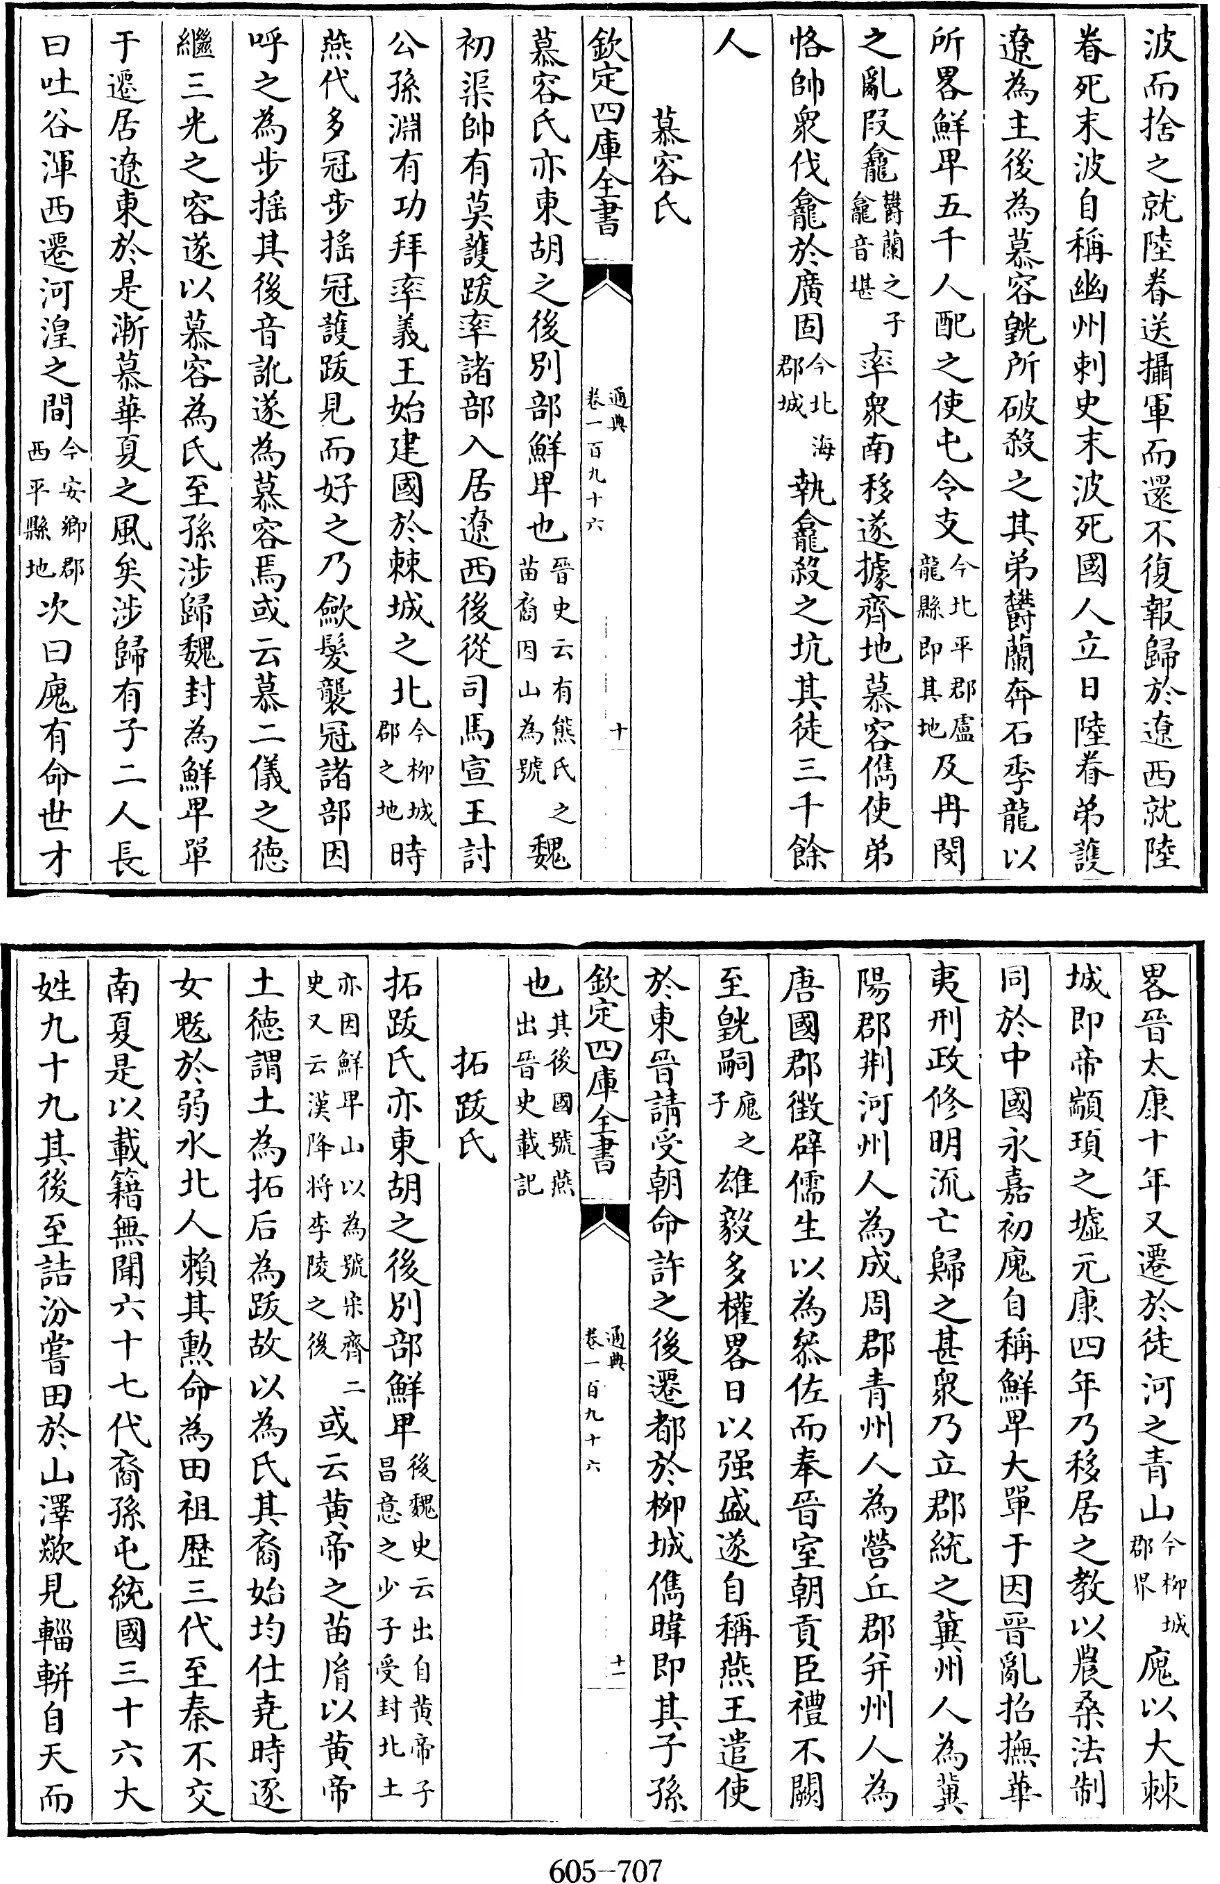 波而捨之就陸眷送攝軍而還不復報歸於遼西就陸
眷死末波自稱幽州刺史末波死國人立日陸眷弟護
遼為主後為慕容皝所破殺之其弟欝蘭奔石季龍以
所畧鮮卑五千人配之使屯令支今北平郡盧龍縣即其地及冉閔
之亂段龕欝蘭之子龕音堪率衆南移遂據齊地慕容儁使弟
恪帥衆伐龕於廣固今北海郡城執龕殺之坑其徒三千餘
人
慕容氏
欽定四庫全書
通典
卷一百九十六
十
慕容氏亦東胡之後別部鮮卑也晉史云有熊氏之苗裔因山為號魏
初渠帥有莫護跋率諸部入居遼西後從司馬宣王討
公孫淵有功拜率義王始建國於棘城之北今柳城郡之地時
燕代多冠步摇冠護跋見而好之乃斂髮襲冠諸部因
呼之為步摇其後音訛遂為慕容焉或云慕二儀之德
繼三光之容遂以慕容為氏至孫涉歸魏封為鮮卑單
于遷居遼東於是漸慕華夏之風矣涉歸有子二人長
曰吐谷渾西遷河湟之間今安鄉郡西平縣地次曰廆有命世才
畧晉太康十年又遷於徒河之青山今柳城郡界廆以大棘
城即帝顓頊之墟元康四年乃移居之教以農桑法制
同於中國永嘉初廆自稱鮮卑大單于因晉亂招撫華
夷刑政修明流亡歸之甚衆乃立郡統之冀州人為冀
陽郡荆河州人為成周郡青州人為營丘郡并州人為
唐國郡徴辟儒生以為叅佐而奉晉室朝貢臣禮不闕
至皝嗣廆之子雄毅多權畧日以强盛遂自稱燕王遣使
於東晉請受朝命許之後遷都於柳城儁暐即其子孫
欽定四庫全書
通典
卷一百九十六
十一
也其後國號燕出晉史載記
拓跋氏
拓跋氏亦東胡之後別部鮮卑後魏史云出自黄帝子昌意之少子受封北土
亦因鮮卑山以為號宋齊二史又云漢降將李陵之後或云黄帝之苗裔以黄帝
土德謂土為拓后為跋故以為氏其裔始均仕堯時逐
女魃於弱水北人賴其勲命為田祖歷三代至秦不交
南夏是以載籍無聞六十七代裔孫屯統國三十六大
姓九十九其後至詰汾嘗田於山澤欻見輜軿自天而
605-707